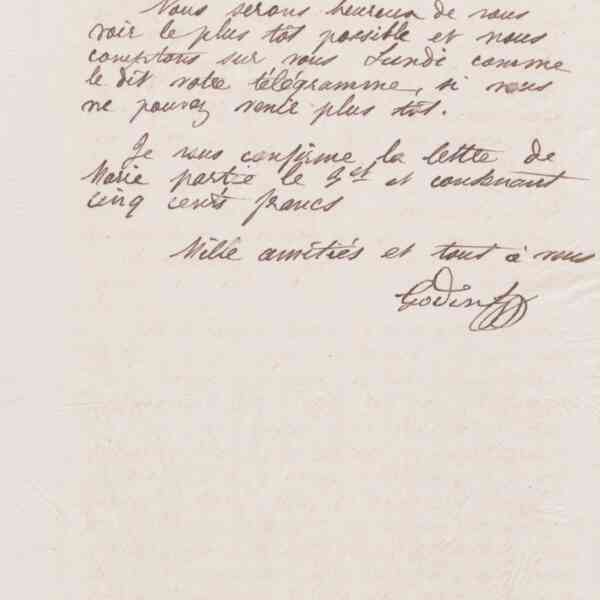 Nous serons heureux de vous
voir le plus tôt possible et nous
comptons sur vous Lundi comme
le dit votre télégramme, si vous
ne pouvez venir plus tôt.
Je vous confirme la lettre de
Marie partie le et contenant
cinq cents francs
Mille amitiés et tout à vous
Godin